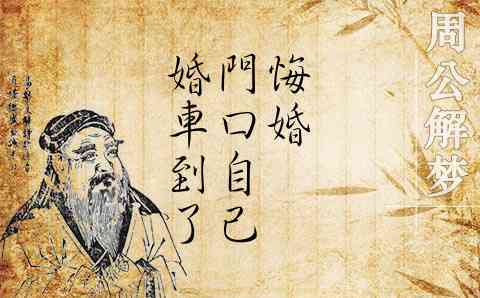 周公解梦
婚車到了
門口自己
悔婚